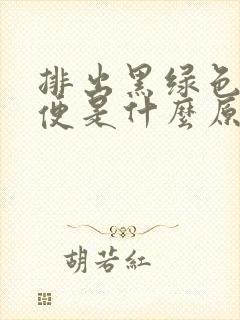 排出黑绿色
便是什麼原
胡若紅